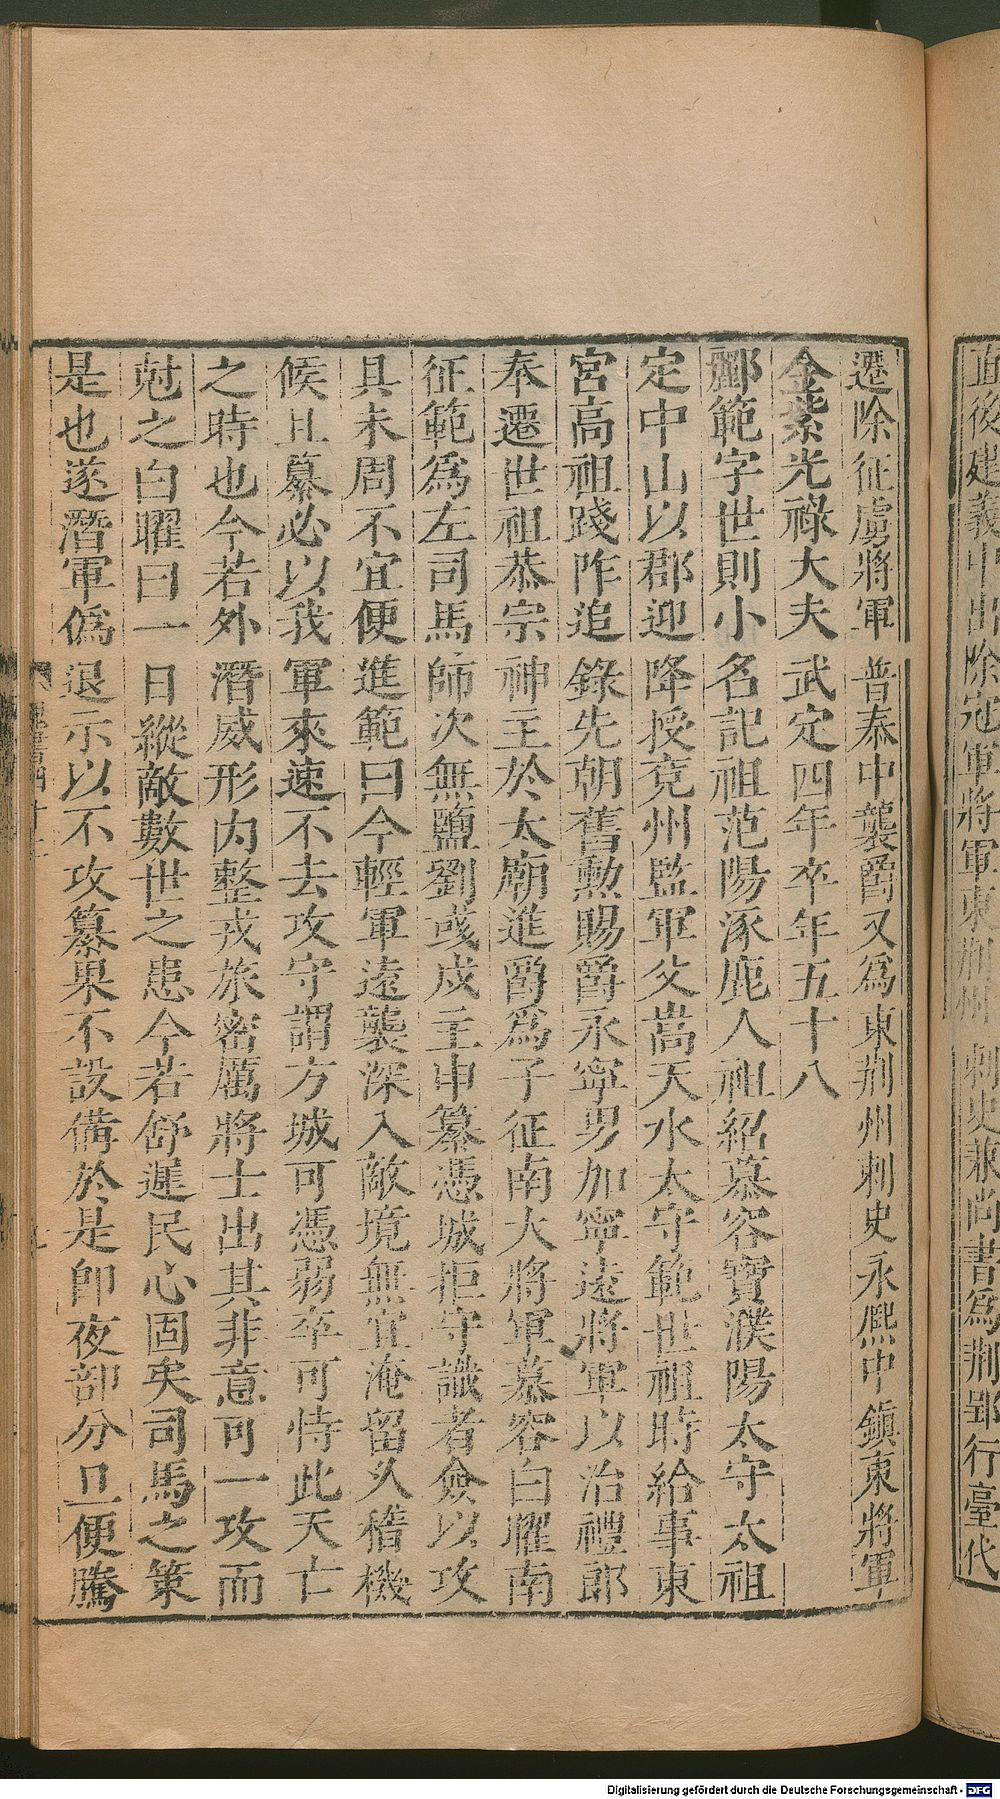 面後建義中出除冠軍將軍東荆州刺史兼尚書為荆郢行臺代
遷除征虜將軍普泰中襲爵又為東荆州刺史永熙中鎮東將軍
金紫光祿大夫武定四年卒年五十八
酈範字世則小名記祖范陽涿鹿人祖紹慕容寶濮陽太守太祖
定中山以郡迎降授兖州監軍父嵩天水太守範世祖時給事東
宮高祖踐阼追錄先朝舊勲賜爵永寧男加寧遠將軍以治禮郎
奉遷世祖恭宗神主於太廟進爵為子征南大將軍慕容白曜南
征範為左司馬師次無鹽劉彧戍主申纂憑城拒守識者僉以攻
具未周不宜便進範曰今輕軍遠襲深入敵境無宜淹留久稽機
候且纂必以我軍來速不去攻守謂方城可憑弱卒可恃此天亡
之時也今若外潛威形内整戎旅密厲將士出其非意可一攻而
尅之白曜曰一日縱敵數世之患今若舒遲民心固矣司馬之策
是也遂潛軍偽退示以不攻纂果不設備於是卽夜部分旦便騰
Digitalisierung gefördert durch die Deutsche Forschungsgemeinschaft - DFG